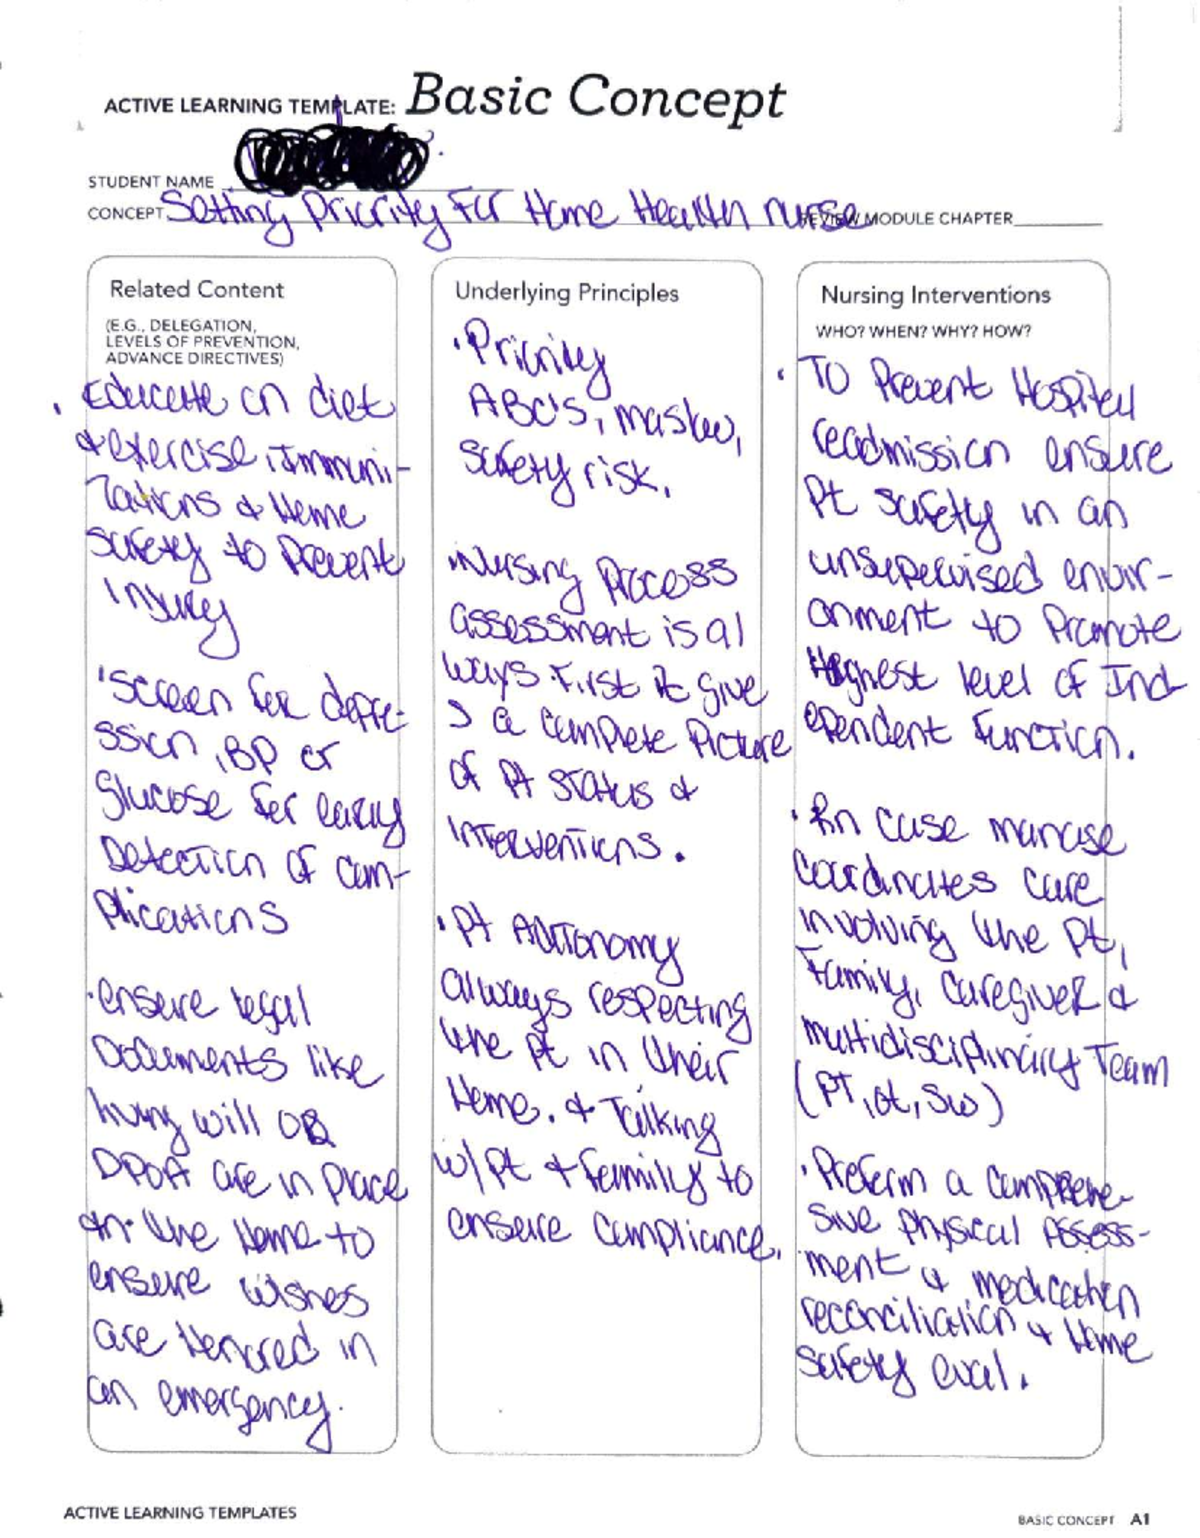 ACTIVE LEARNING TEMPLATE: Basic Concept
STUDENT NAME
CONCEPT Setting Priority For Home Health nurse REVIEW MODULE CHAPTER
Related Content
(E.G., DELEGATION,
LEVELS OF PREVENTION,
ADVANCE DIRECTIVES)
· Educate on diet
& exercise, Immuni-
zations & Home
Safety to Prevent
Injury
· Screen for depre-
ssion, BP or
Glucose for early
Detection of com-
plications
· ensure legal
Documents like
living will OR
DPOA are in Place
in the Home to
ensure wishes
are Honored in
an emergency.
Underlying Principles
· Priority
ABC's, maslow,
safety risk.
· Nursing Process
assessment is al
ways First it give
s a complete Picture
of Pt status &
Interventions.
· Pt Autonomy
always respecting
the pt in their
Home. & Talking
w/ Pt & family to
ensure compliance.
Nursing Interventions
WHO? WHEN? WHY? HOW?
· To Prevent Hospital
readmission ensure
Pt safety in an
unsupervised envir-
onment to Promote
Highest level of Ind
ependent Function.
· Rn case manage
coordinates care
involving the Pt,
Family, Caregiver &
multidisciplinary Team
(PT, ot, SW)
· Preform a comprehe-
sive physical Assess-
ment & medication
reconciliation & Home
safety eval.
ACTIVE LEARNING TEMPLATES
BASIC CONCEPT A1